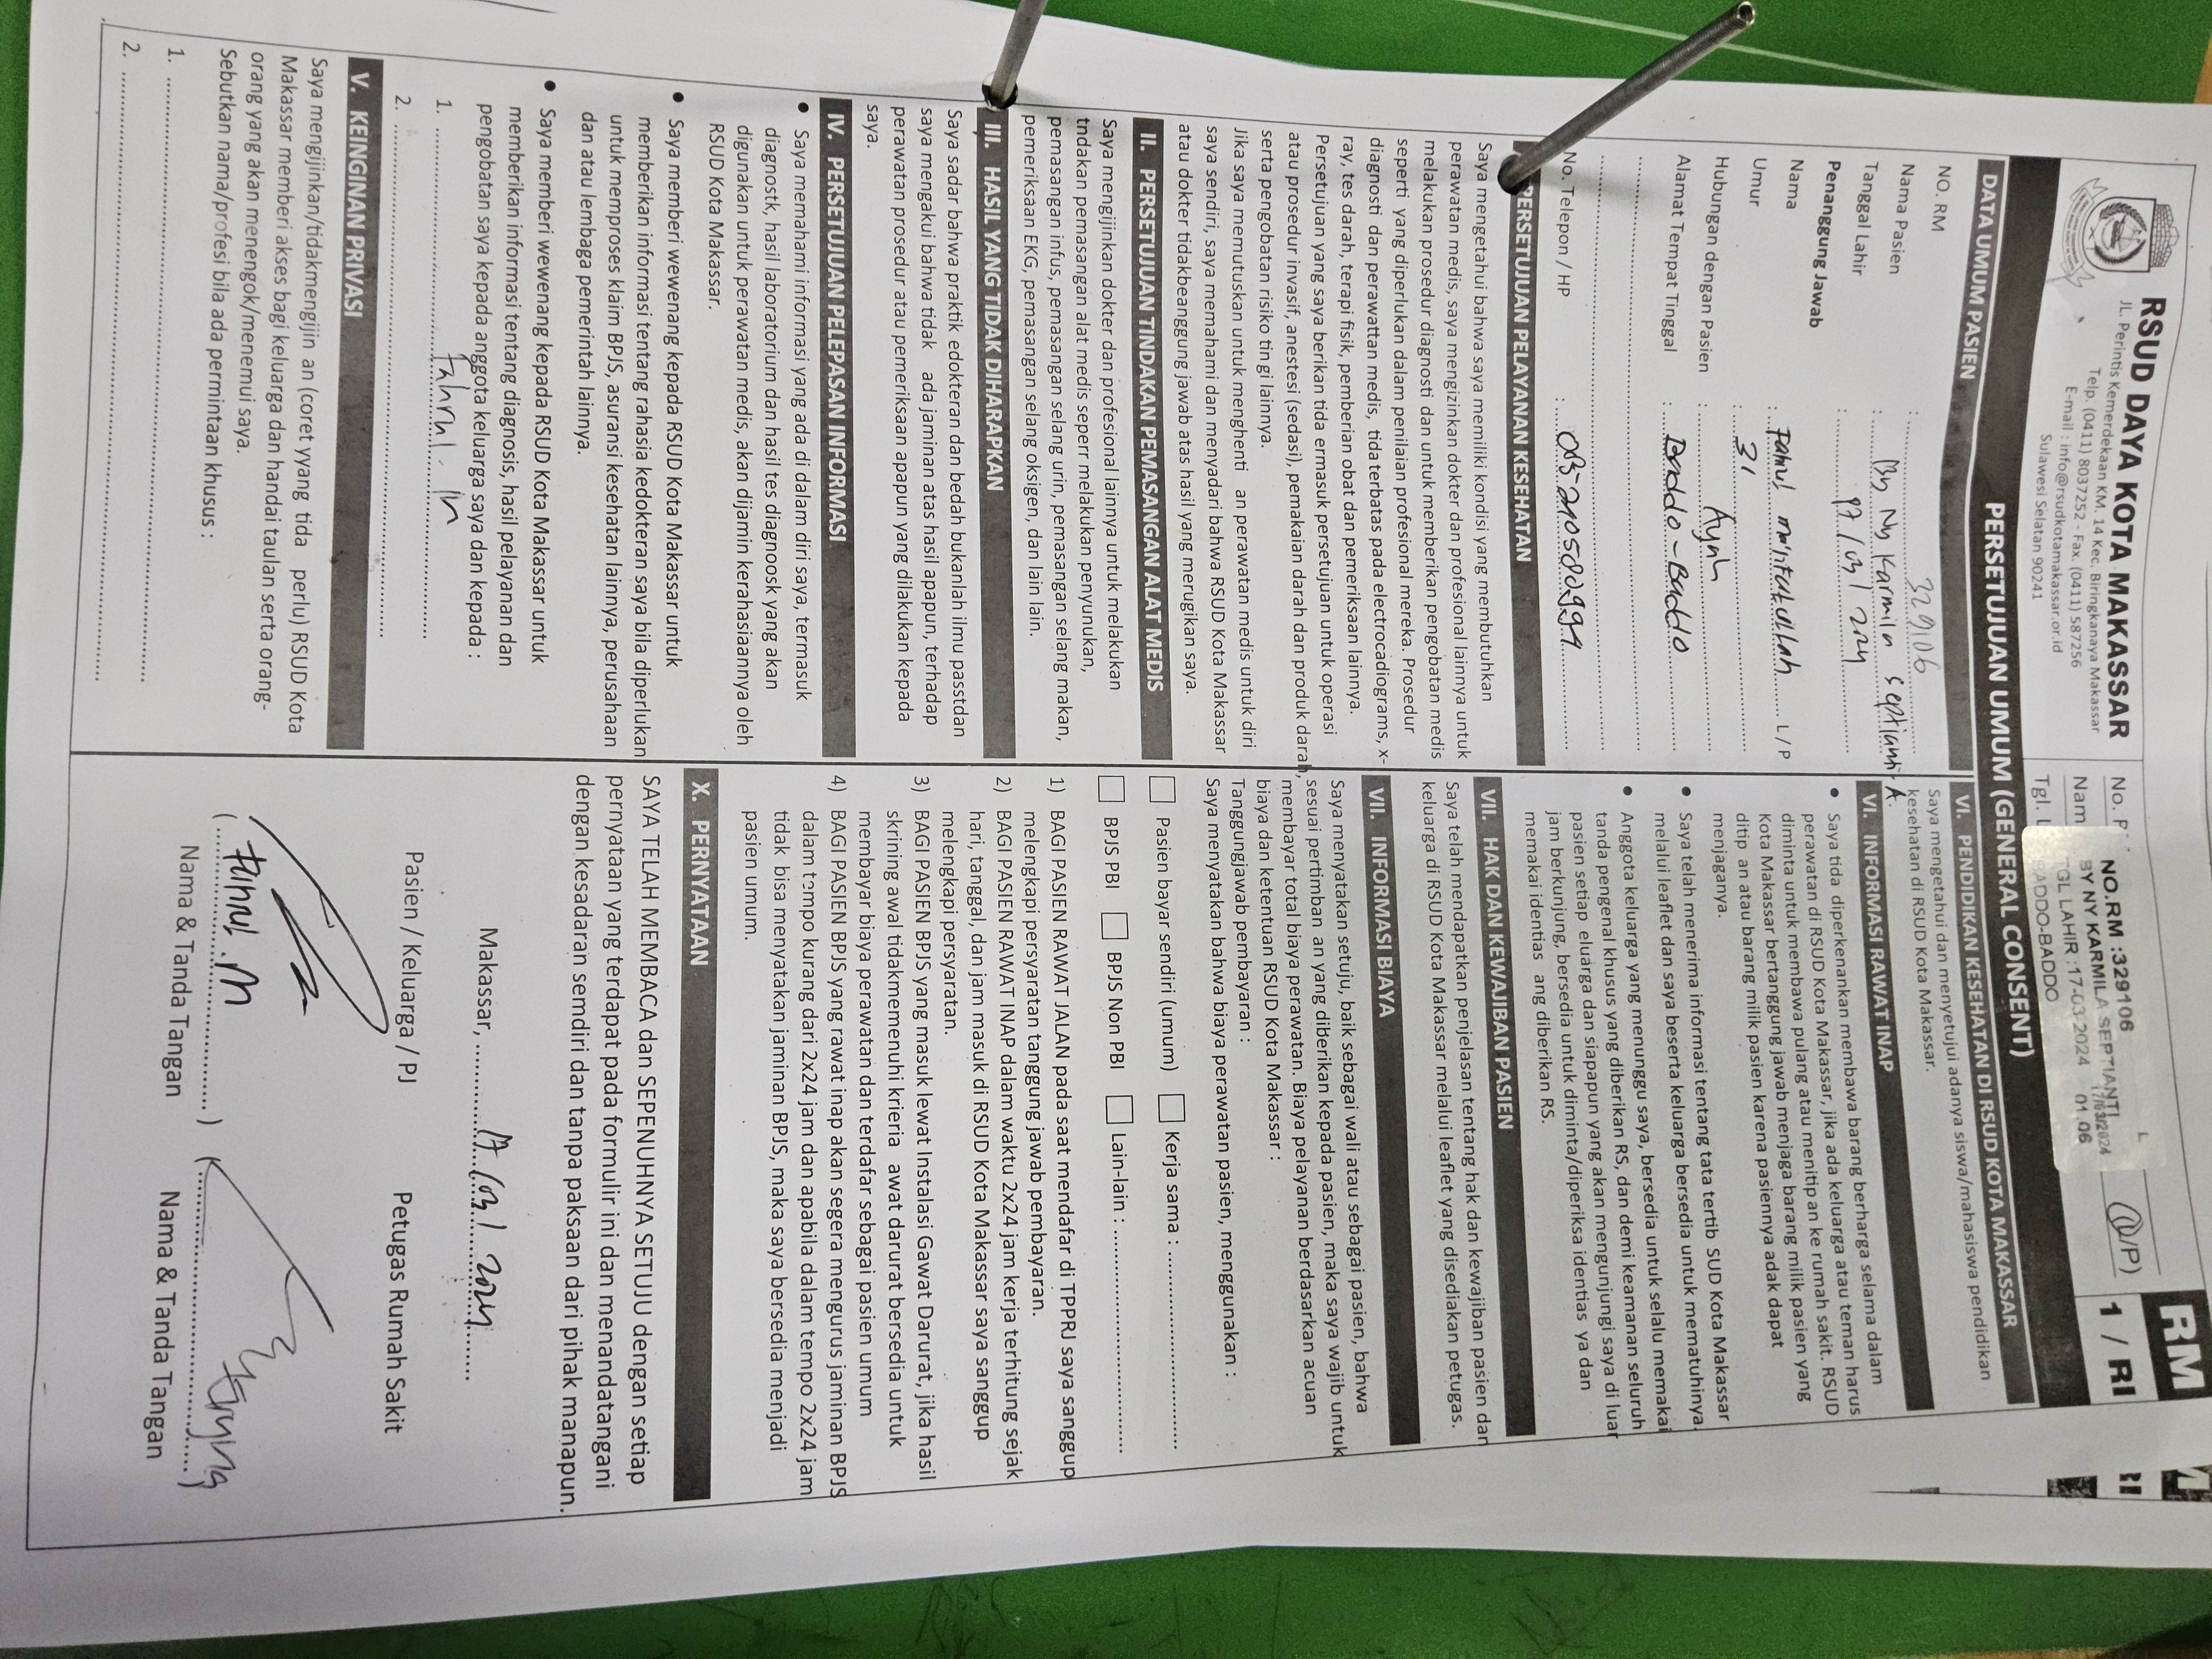 RSUD DAYA KOTA MAKASSAR
JL. Perintis Kemerdekaan KM. 14 Kec. Biringkanaya Makassar
Telp. (0411) 8037252 - Fax. (0411) 587256
E-mail : info@rsudkotamakassar.or.id
Sulawesi Selatan 90241
No. P
Nam
Tgl. L
NO.RM :329106
BY NY KARMILA SEPTIANTI
TGL LAHIR :17-03-2024 01.06
BADDO-BADDO
L
17/03/2024
(L/P)
RM
1 / RI
PERSETUJUAN UMUM (GENERAL CONSENT)
DATA UMUM PASIEN
NO. RM : 329106
Nama Pasien : By Ny Karmila Septianti. A.
Tanggal Lahir : 17 / 03 / 2024
Penanggung Jawab
Nama : L / P
Umur : 31
Hubungan dengan Pasien : Ayah
Alamat Tempat Tinggal : Baddo - Baddo
No. Telepon / HP :
PERSETUJUAN PELAYANAN KESEHATAN
Saya mengetahui bahwa saya memiliki kondisi yang membutuhkan
perawatan medis, saya mengizinkan dokter dan profesional lainnya untuk
melakukan prosedur diagnosti dan untuk memberikan pengobatan medis
seperti yang diperlukan dalam penilaian profesional mereka. Prosedur
diagnosti dan perawattan medis, tida terbatas pada electrocadiograms, x-
ray, tes darah, terapi fisik, pemberian obat dan pemeriksaan lainnya.
Persetujuan yang saya berikan tida ermasuk persetujuan untuk operasi
atau prosedur invasif, anestesi (sedasi), pemakaian darah dan produk darah,
serta pengobatan risiko tin gi lainnya.
Jika saya memutuskan untuk menghenti an perawatan medis untuk diri
saya sendiri, saya memahami dan menyadari bahwa RSUD Kota Makassar
atau dokter tidakbeanggung jawab atas hasil yang merugikan saya.
II. PERSETUJUAN TINDAKAN PEMASANGAN ALAT MEDIS
Saya mengijinkan dokter dan profesional lainnya untuk melakukan
tndakan pemasangan alat medis seperr melakukan penyunukan,
pemasangan infus, pemasangan selang urin, pemasangan selang makan,
pemeriksaan EKG, pemasangan selang oksigen, dan lain lain.
III. HASIL YANG TIDAK DIHARAPKAN
Saya sadar bahwa praktik edokteran dan bedah bukanlah ilmu passtdan
saya mengakui bahwa tidak ada jaminan atas hasil apapun, terhadap
perawatan prosedur atau pemeriksaan apapun yang dilakukan kepada
saya.
IV. PERSETUJUAN PELEPASAN INFORMASI
• Saya memahami informasi yang ada di dalam diri saya, termasuk
diagnostk, hasil laboratorium dan hasil tes diagnoosk yang akan
digunakan untuk perawatan medis, akan dijamin kerahasiaannya oleh
RSUD Kota Makassar.
• Saya memberi wewenang kepada RSUD Kota Makassar untuk
memberikan informasi tentang rahasia kedokteran saya bila diperlukan
untuk memproses klaim BPJS, asuransi kesehatan lainnya, perusahaan
dan atau lembaga pemerintah lainnya.
• Saya memberi wewenang kepada RSUD Kota Makassar untuk
memberikan informasi tentang diagnosis, hasil pelayanan dan
pengobatan saya kepada anggota keluarga saya dan kepada :
1. Fahrul. m
2.
V. KENGINAN PRIVASI
Saya mengijinkan/tidakmengijin an (coret yyang tida perlu) RSUD Kota
Makassar memberi akses bagi keluarga dan handai taulan serta orang-
orang yang akan menengok/menemui saya.
Sebutkan nama/profesi bila ada permintaan khusus :
1.
2.
VI. PENDIDIKAN KESEHATAN DI RSUD KOTA MAKASSAR
Saya mengetahui dan menyetujui adanya siswa/mahasiswa pendidikan
kesehatan di RSUD Kota Makassar.
VI. INFORMASI RAWAT INAP
• Saya tida diperkenankan membawa barang berharga selama dalam
perawatan di RSUD Kota Makassar, jika ada keluarga atau teman harus
diminta untuk membawa pulang atau menitip an ke rumah sakit. RSUD
Kota Makassar bertanggung jawab menjaga barang milik pasien yang
ditip an atau barang milik pasien karena pasiennya adak dapat
menjaganya.
• Saya telah menerima informasi tentang tata tertib SUD Kota Makassar
melalui leaflet dan saya beserta keluarga bersedia untuk mematuhinya.
• Anggota keluarga yang menunggu saya, bersedia untuk selalu memakai
tanda pengenal khusus yang diberikan RS, dan demi keamanan seluruh
pasien setiap eluarga dan siapapun yang akan mengunjungi saya di luar
jam berkunjung, bersedia untuk diminta/diperiksa identias ya dan
memakai identias ang diberikan RS.
VII. HAK DAN KEWAJIBAN PASIEN
Saya telah mendapatkan penjelasan tentang hak dan kewajiban pasien dan
keluarga di RSUD Kota Makassar melalui leaflet yang disediakan petugas.
VII. INFORMASI BIAYA
Saya menyatakan setuju, baik sebagai wali atau sebagai pasien, bahwa
sesuai pertimban an yang diberikan kepada pasien, maka saya wajib untuk
membayar total biaya perawatan. Biaya pelayanan berdasarkan acuan
biaya dan ketentuan RSUD Kota Makassar :
Tanggungjawab pembayaran :
Saya menyatakan bahwa biaya perawatan pasien, menggunakan :
Pasien bayar sendiri (umum) Kerja sama :
BPJS PBI BPJS Non PBI Lain-lain :
1) BAGI PASIEN RAWAT JALAN pada saat mendafar di TPPRJ saya sanggup
melengkapi persyaratan tanggung jawab pembayaran.
2) BAGI PASIEN RAWAT INAP dalam waktu 2x24 jam kerja terhitung sejak
hari, tanggal, dan jam masuk di RSUD Kota Makassar saya sanggup
melengkapi persyaratan.
3) BAGI PASIEN BPJS yang masuk lewat Instalasi Gawat Darurat, jika hasil
skrining awal tidakmemenuhi krieria awat darurat bersedia untuk
membayar biaya perawatan dan terdafar sebagai pasien umum
4) BAGI PASIEN BPJS yang rawat inap akan segera mengurus jaminan BPJS
dalam tempo kurang dari 2x24 jam dan apabila dalam tempo 2x24 jam
tidak bisa menyatakan jaminan BPJS, maka saya bersedia menjadi
pasien umum.
X. PERNYATAAN
SAYA TELAH MEMBACA dan SEPENUHNYA SETUJU dengan setiap
pernyataan yang terdapat pada formulir ini dan menandatangani
dengan kesadaran semdiri dan tanpa paksaan dari pihak manapun.
Makassar, 17 / 03 / 2024
Pasien / Keluarga / PJ Petugas Rumah Sakit
( Fahrul. M )
Nama & Tanda Tangan Nama & Tanda Tangan